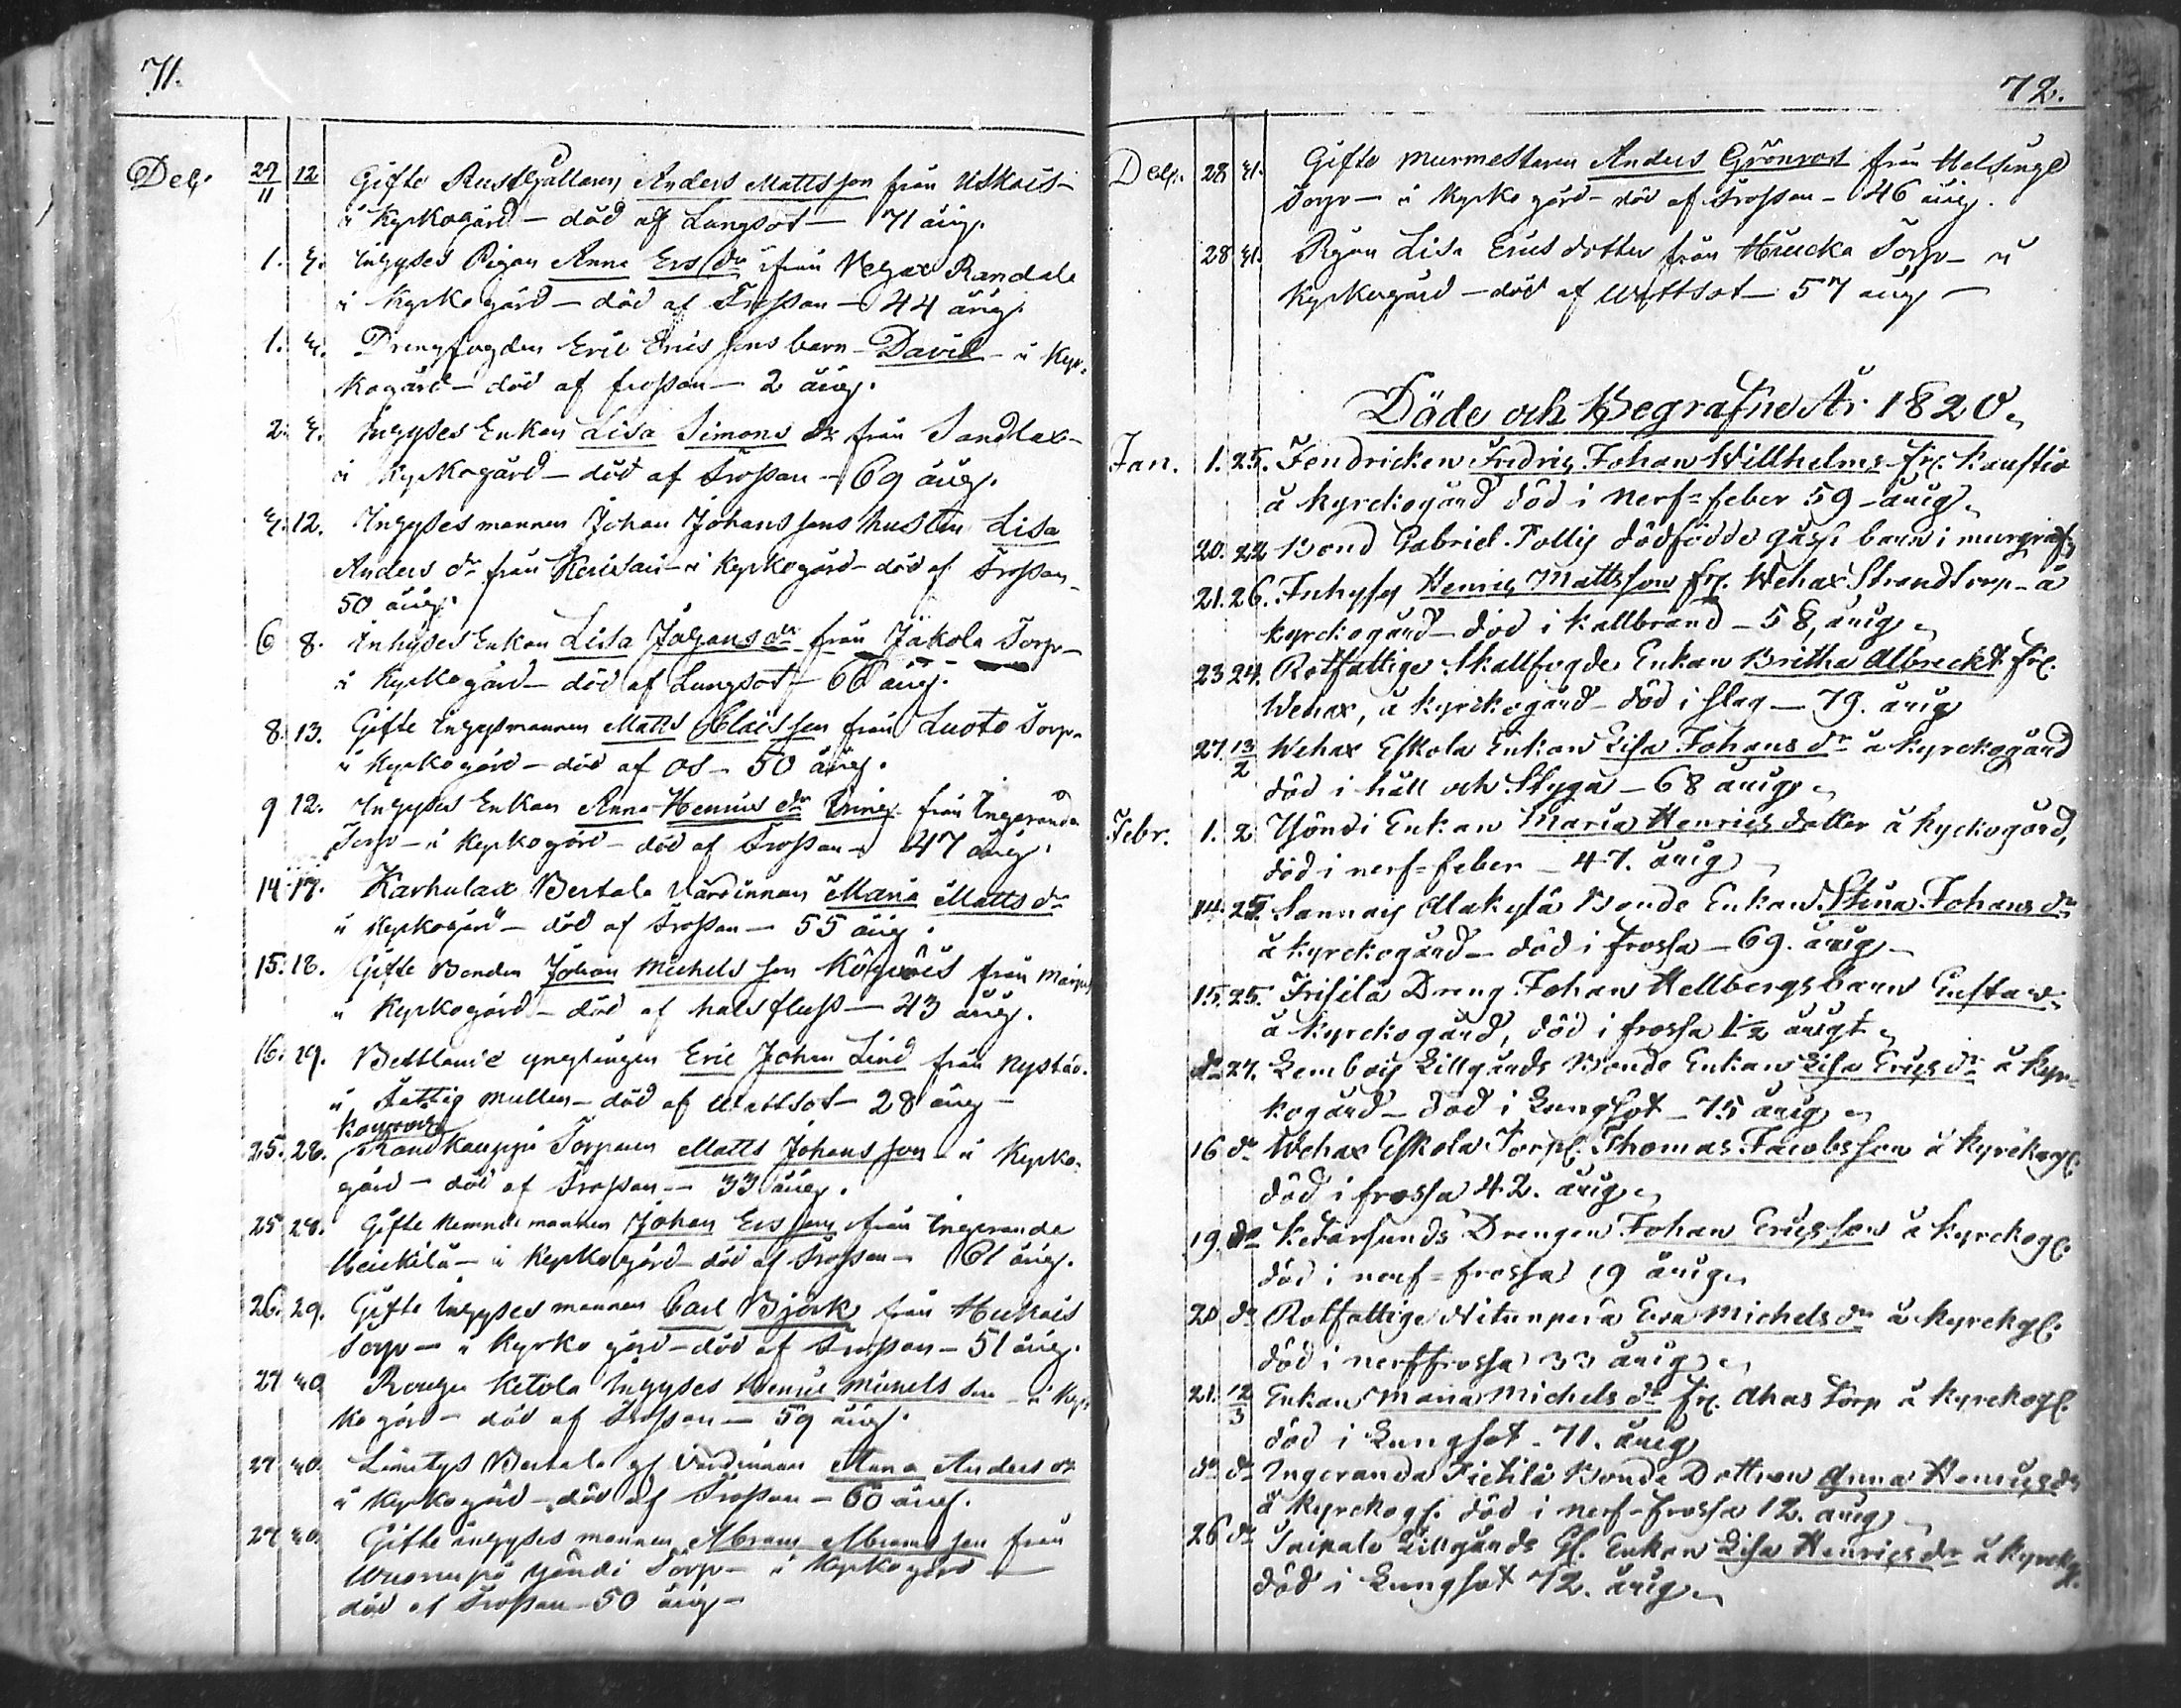 71.
Dec. 29/11 12 Gifte Rusthållaren Anders Mattsson från Uskais-
å Kyrkogård - död af Lungsot - 71 årig.
1. Inhyses Pigan Anna Ersdr från Vehax Randala
å Kyrkogård - död af Frossan - 44 årig.
1. Drengfogden Eric Ericssons barn - David - å Kyr-
kogård - död af frossan - 2 årig.
2. Inhyses Enkan Lisa Simons dr från Sandlax -
å Kyrkogård - död af Frossan - 69 årig.
12. Inhyses mannen Johan Johanssons hustru Lisa
Anders dr från - å Kyrkogård - död af Frossan -
50 årig.
6 8. Inhyses Enkan Lisa Johans dr från Jakola Torp -
å Kyrkogård - död af Lungsot - 66 årig.
8. 13. Gifte Inhysmannen Matts Claesson från Luoto Torp -
å Kyrkogård - död af os - 50 årig.
9 12. Inhyses Enkan Anna Henrics dr från Ingeranda
Torp - å Kyrkogård - död af Frossan - 47 årig.
14 17. Karhulax Bertala Värdinnan Maria Matts dr
å Kyrkogård - död af Frossan - 55 årig.
15. 18. Gifte Bonden Johan Michelsson från
å Kyrkogård - död af halsfluss - 43 årig.
16. 29. ynglingen Eric Johan Lind från Nystad.
å Fattig mullen - död af Wattsot - 28 årig -
25. 28. Torparen Matts Johansson - å Kyrko-
gård - död af Frossan - 33 årig.
25 28. Gifte mannen Johan Ersson från Ingeranda
Heickilä - å Kyrkogård - död af Frossan - 61 årig.
26. 29. Gifte Inhyses mannen Carl Björk från
Torp - å Kyrkogård - död af Frossan - 51 årig.
27 Ketola Inhyses Henric Michelsson - å Kyr
kogård - död af Frossan - 59 årig.
27 Bertala gl Värdinnan Anna Anders dr
å Kyrkogård - död af Frossan - 60 årig.
27 Gifte inhyses mannen Abram Abramsson från
Torp - å Kyrkogård -
död af Frossan - 50 årig -
72.
Dec. 28 Gifte Murmestaren Anders Grönroos från Helsinge
Torp - å Kyrkogård - död af Frossan - 46 årig.
28 Pigan Lisa Ericsdotter från Torp - å
Kyrkogård - död af Wattsot - 57 årig -
Döde och Begrafne År 1820.
Jan. 1. 25. Fendricken Fredric Johan Willhelms fr.
å kyrckogård död i Nerf-feber 59 årig
20. 22 Bond Gabriel Tollis dödfödde gåsse barn i
21. 26. Inhyses Henric Mattsson fr. Wehax Strandtorp - å
kyrckogård - död i kallbrand - 58, årig
23 24. Rotfattige Skallfogde Enkan Britha Albreckt fr.
Wehax, å kyrckogård - död i slag - 79. årig
27. 13/2 Wehax Eskola Enkan Lisa Johans dr å kyrckogård
död i håll och Styng - 68 årig
Febr. 1. 2 Enkan Maria Henricsdotter å kyckogård,
död i nerf-feber - 47. årig
14. 25. Bonde Enkan Stina Johans dr
å kyrckogård - död i frossa - 69. årig -
15. 25. Dreng Johan Hellbergs barn Gustaw
å kyrckogård, död i frossa 1½ årigt
do 27. Lillgårds Bonde Enkan Lisa Erics dr å kyr-
kogård - död i Lungsot - 75 årig
16 do Wehax Eskola Torp: Thomas Jacobsson å kyrckog:
död i frossa 42. årig
19. do Ketarsunds Drengen Johan Ericsson å kyrckog:
död i nerf-frossa 19 årig
20 do Rotfattige Eva Michels dr å kyrckg:
död i nerffrossa 33 årig
21. 12/3 Enkan Maria Michels dr fr. Ahas Torp å kyrckog:
död i Lungsot - 71. årig
do do Ingeranda Bonde Dottren Anna Henrics dr
å kyrckog: död i nerf-frossa 12. årig
26 do Lillgårds Gl. Enkan Lisa Henrics dr å kyrckg.
död i Lungsot 72. årig